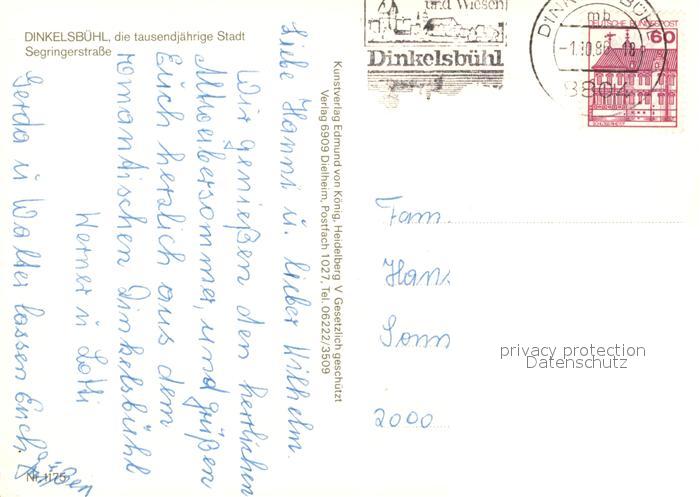 DINKELSBÜHL, die tausendjährige Stadt
Segringerstraße
Liebe Hanni u. lieber Wilhelm.
Wir genießen den herrlichen
Altweibersommer, und grüßen
Euch herzlich aus dem
romantischen Dinkelsbühl
Werner u Lotti
Gerda u Walter lassen Euch
grüßen
Nr. 1175
Kunstverlag Edmund von König, Heidelberg V Gesetzlich geschützt
Verlag 6909 Dielheim, Postfach 1027, Tel. 06222/3509
und Wiesen
Dinkelsbühl
DINKELSBÜHL
mb
-1.10.86
8804
DEUTSCHE BUNDESPOST
60
Fam.
Hans
Sonn
2000
privacy protection
Datenschutz